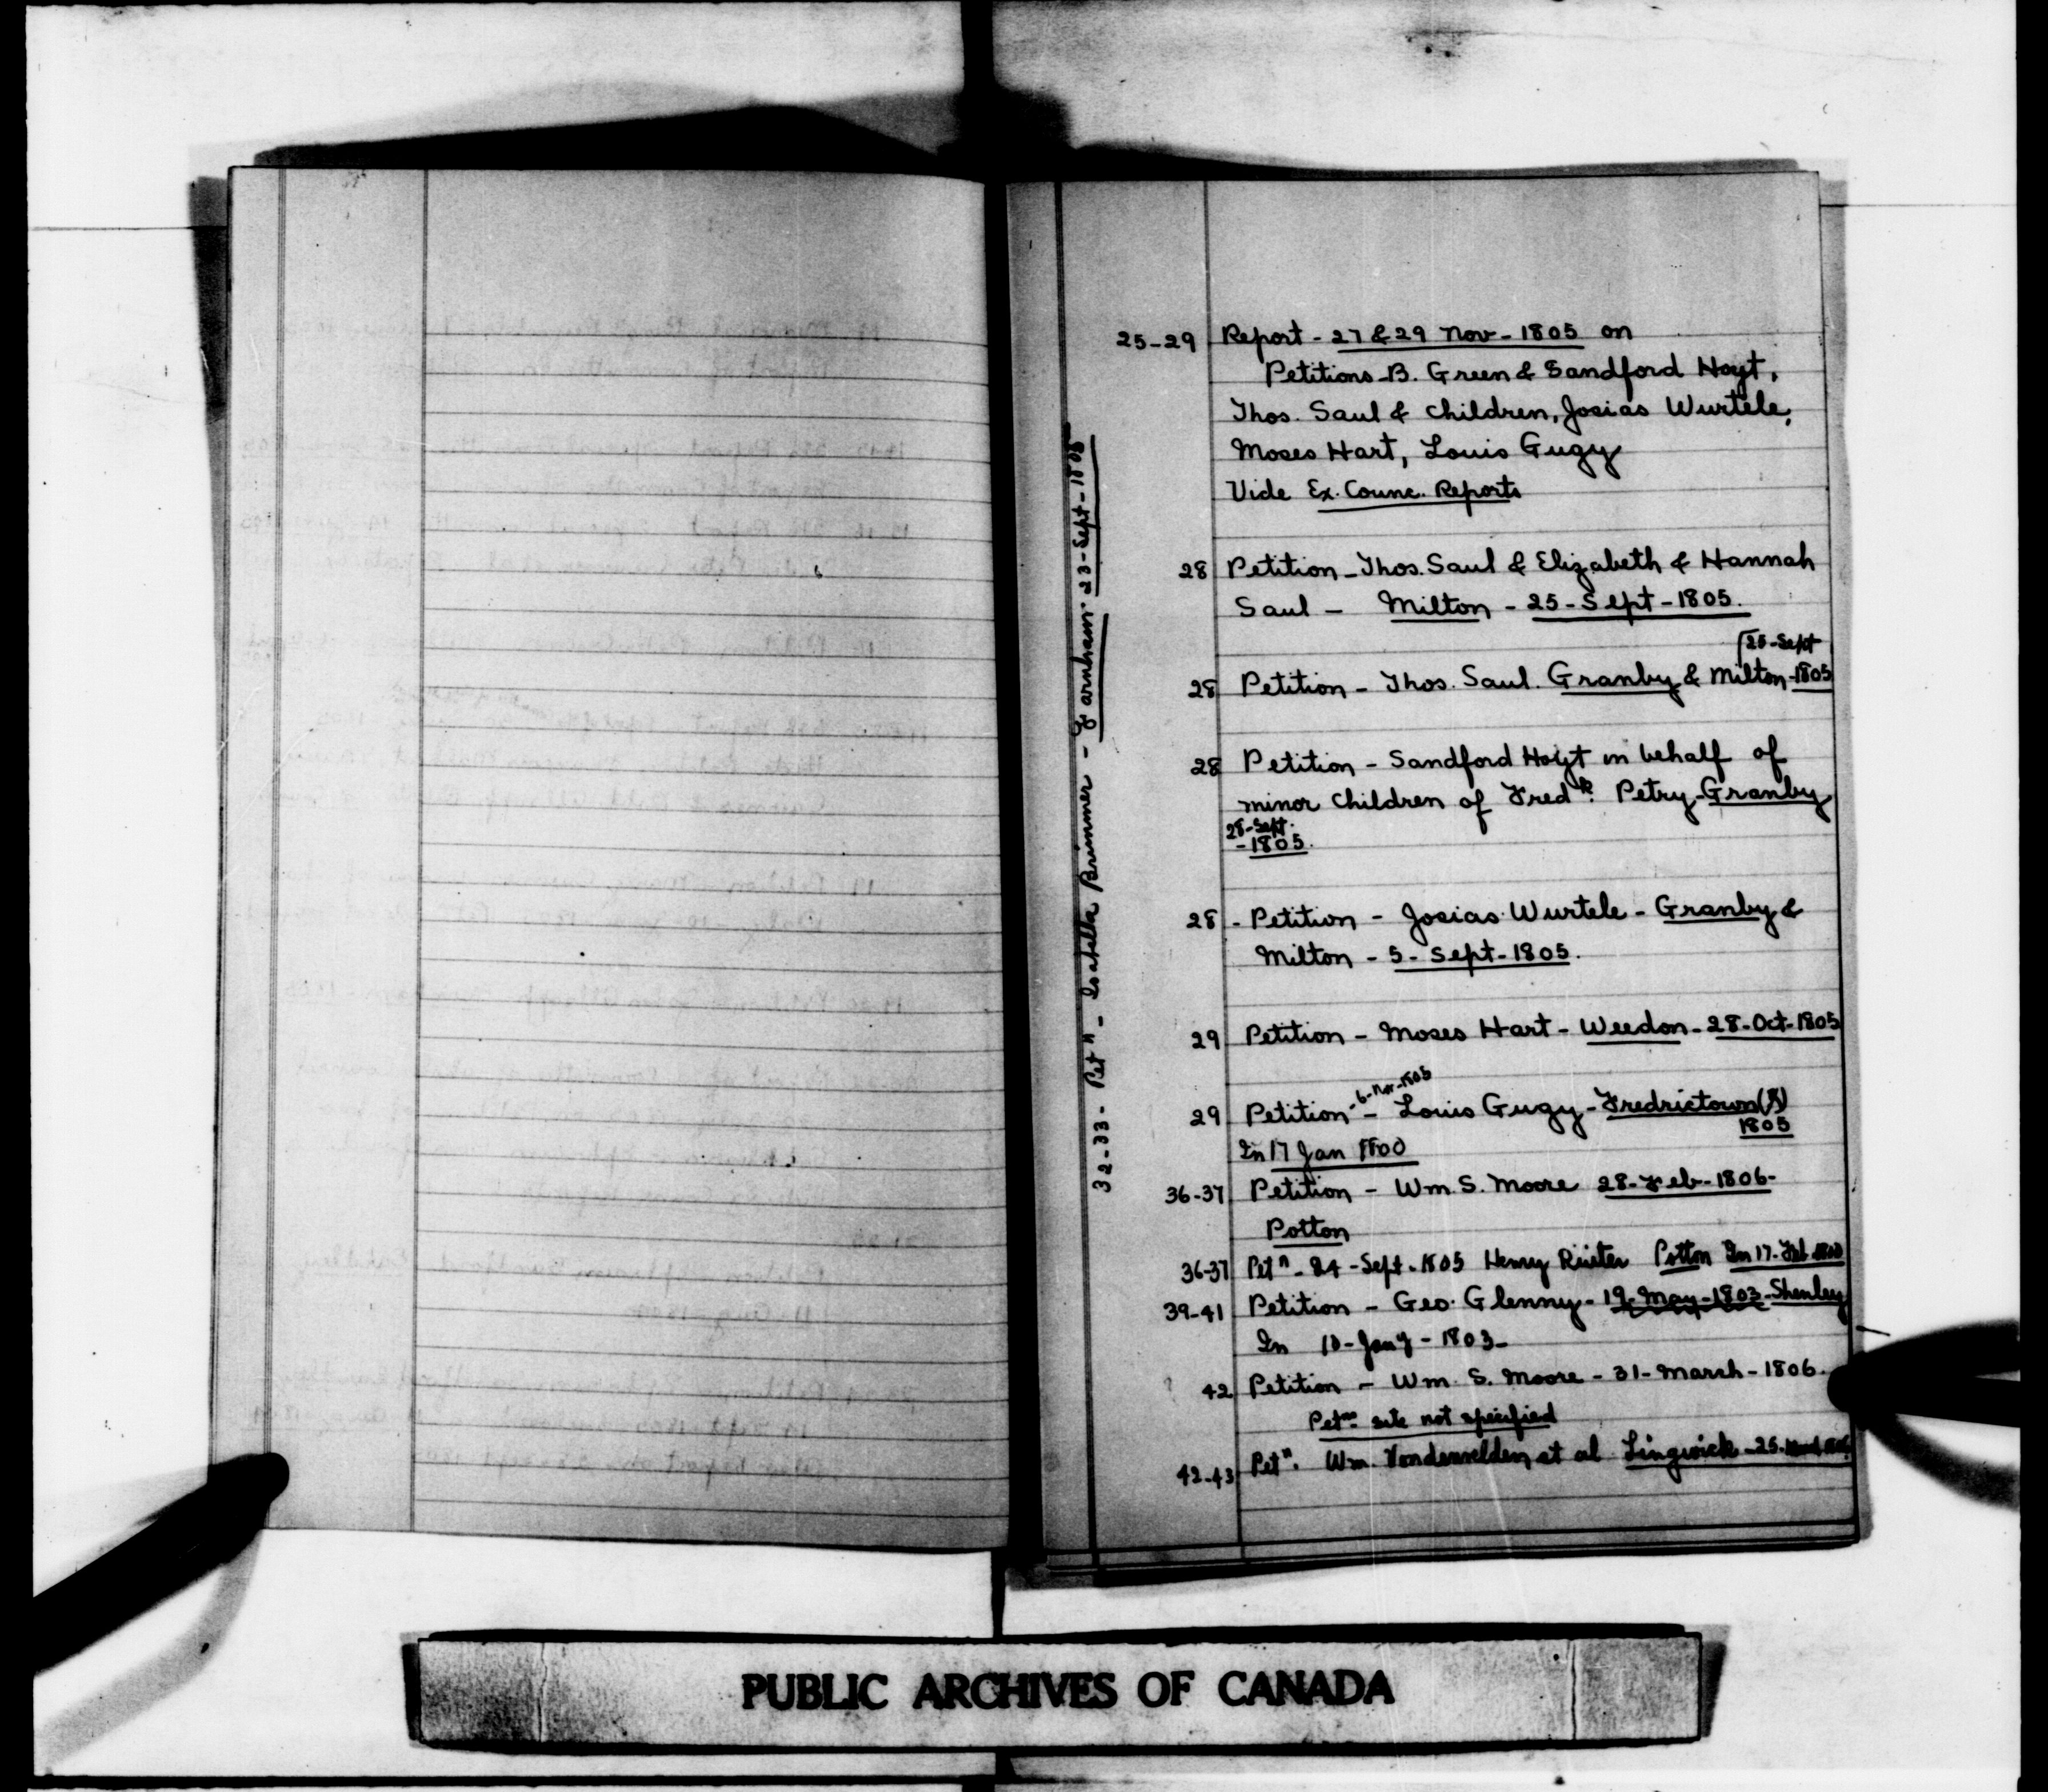 25-29 Report - 27 & 29 Nov - 1805 on
Petitions - B. Green & Sandford Hoyt,
Thos. Saul & Children, Josias Wurtele,
Moses Hart, Louis Gugy
Vide Ex. Counc. Reports
28 Petition - Thos. Saul & Elizabeth & Hannah
Saul - Milton - 25 - Sept - 1805.
25-Sept
28 Petition - Thos. Saul. Granby & Milton - 1805
28 Petition - Sandford Hoyt in behalf of
minor Children of Fredk. Petry - Granby
28-Sept.
- 1805.
28 - Petition - Josias Wurtele - Granby &
Milton - 5 - Sept - 1805.
29 Petition - Moses Hart - Weedon - 28 - Oct - 1805
- 6 - Nov - 1805
29 Petition - Louis Gugy - Fredrictown (?)
1805
In 17 Jan 1800
36-37 Petition - Wm. S. Moore 28 - Feb - 1806 -
Potton
36-37 Petn - 24 - Sept - 1805 Henry Ruiter Potton In 17 - Feb
39-41 Petition - Geo. Glenny - 19 - May - 1803 - Shenley
In 10 - Jany - 1803 -
42 Petition - Wm. S. Moore - 31 - March - 1806.
site not specified
42-43 Petn. Wm. Vondenvelden et al Lingwick - 25
32-33 - Petn - Isabella Brimmer - Farnham - 23 - Sept - 1805
PUBLIC ARCHIVES OF CANADA